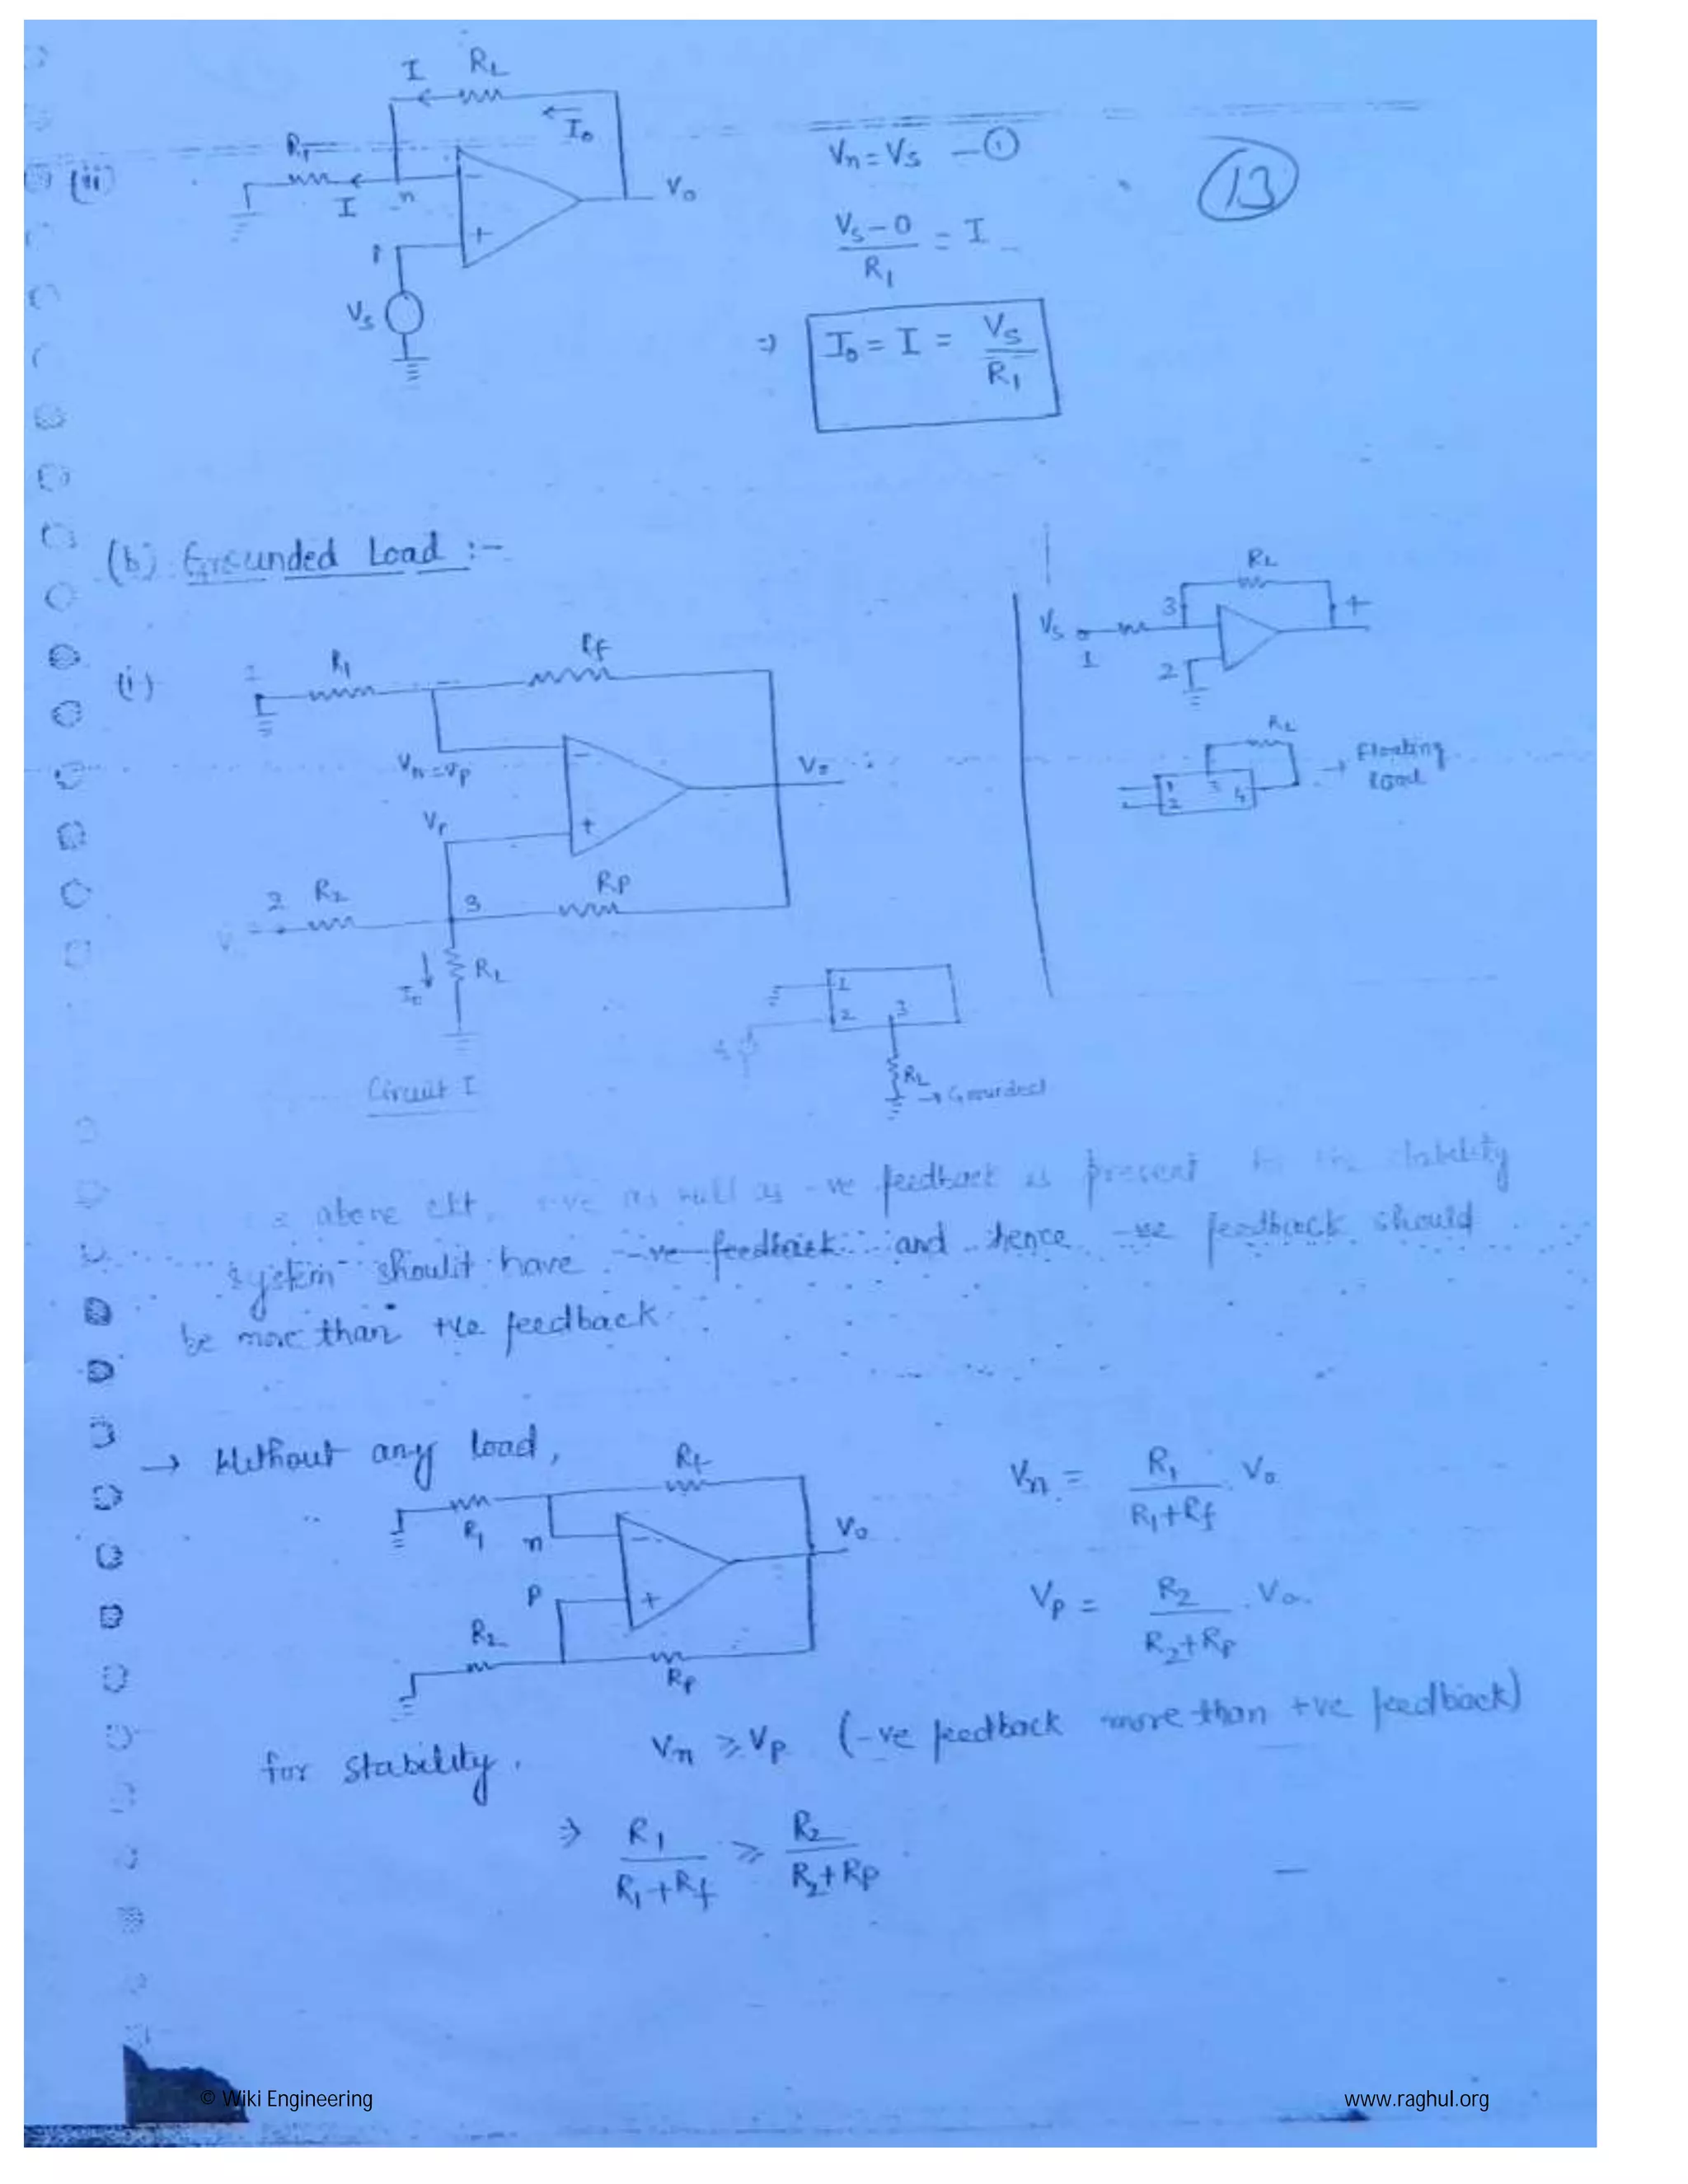 (ii)
I RL
I0
R1
I n
Vo
Vs
Vn = Vs —①
(13)
Vs-0 / R1 = I
⇒ I0 = I = Vs / R1
(b) Grounded Load :-
(i)
1 R1 Rf
Vn = Vp
Vo
Vp
2 R2 3 RP
I0 RL
Circuit I
RL
Vs 3 +
1 2
RL
1 2 3 4 → Floating load
1
2 3
RL → Grounded
above ckt, +ve as well as -ve feedback is present for the stability
system should have -ve feedback and hence -ve feedback should
be more than +ve feedback
→ Without any load,
Rf
R1 n
Vo
P
R2
RP
Vn = R1 / R1+Rf . Vo
Vp = R2 / R2+Rp . Vo.
for stability, Vn ⩾ Vp (-ve feedback more than +ve feedback)
⇒ R1 / R1+Rf ⩾ R2 / R2+Rp
© Wiki Engineering
www.raghul.org